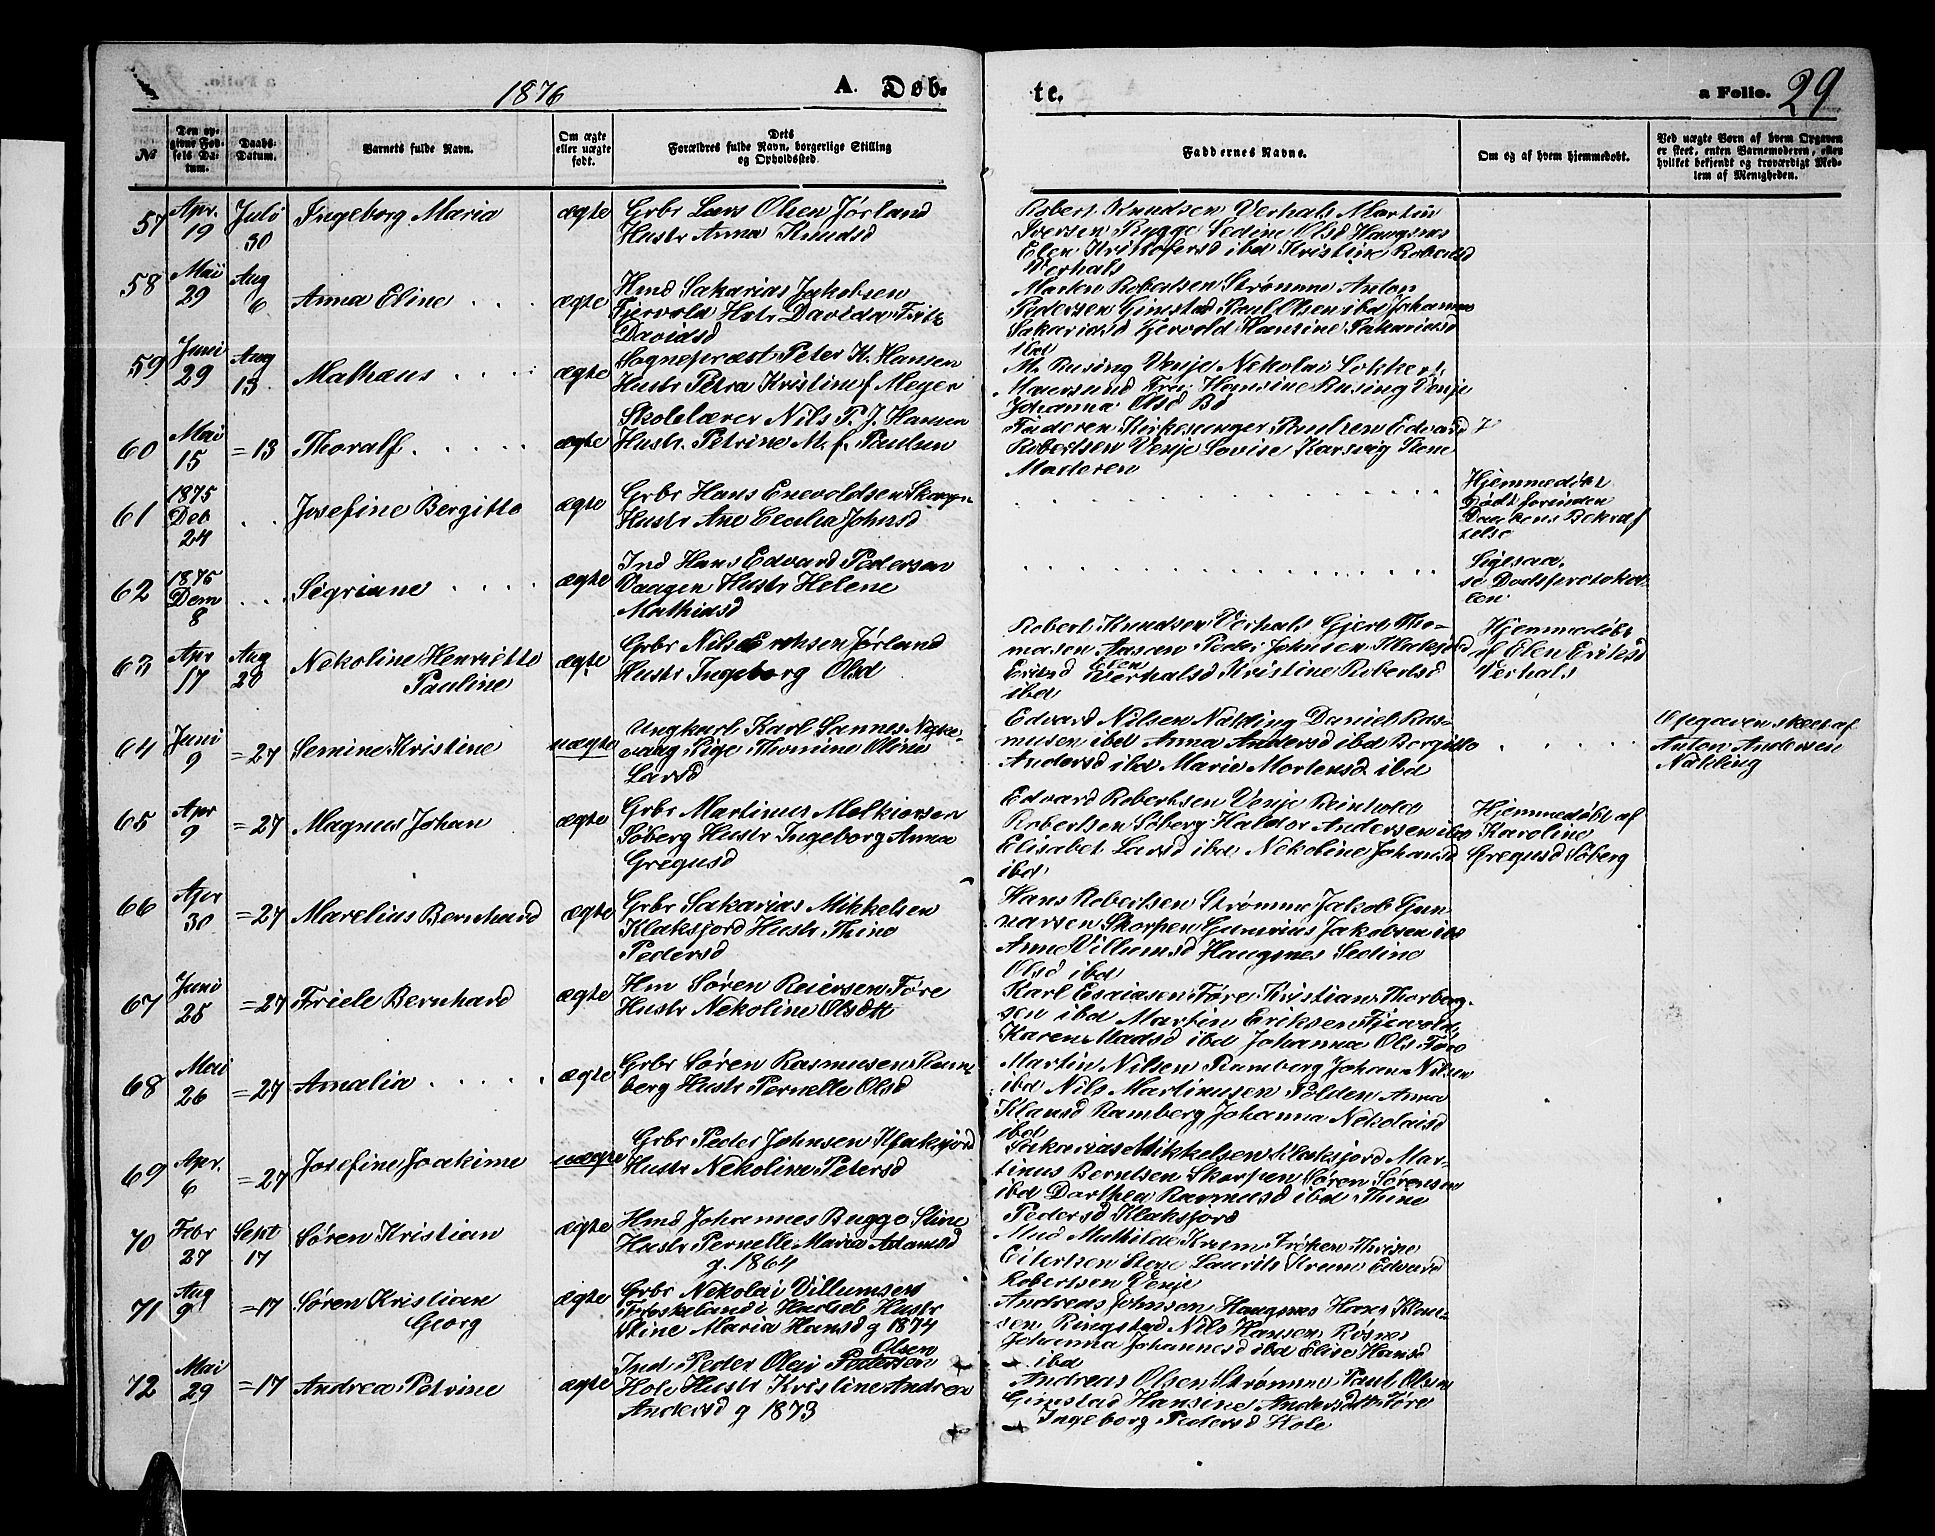 1876
A. Døb-
te.
a Folio. 29
№
Den op-
givne Fød-
sels Da-
tum.
Daabs-
Datum.
Barnets fulde Navn.
Om ægte
eller uægte
født.
Dets
Forældres fulde Navn, borgerlige Stilling
og Opholdssted.
Faddernes Navne.
Om og af hvem hjemmedøbt.
Ved uægte Børn af hvem Opgaven
er skeet, enten Barnemoderen, eller
hvilket bekjendt og troværdigt Med-
lem af Menigheden.
57 Apr. 19 Juli 30 Ingeborg Maria ægte
Grbr Lars Olsen Jørland
Hustr Anna Knudsd
Robert Knudsen Verhals Martin
Iversen Bygge Sedine Olsd Haugsnes
Elen Kristofersd ibd Kristine Robertsd
Verhals
58 Mai 29 Aug 6 Anna Eline ægte
Hmd Sakarias Jakobsen
Fjærvold Hstr Davida
Davidsd
Marten Robertsen Strømme Anton
Pedersen Gimstad Paul Olsen ibd Johanna
Sakariasd Hansine Sakariasd
ibd
59 Juni 29 Aug 13. Mathæus ægte
Sognepræst Peter K. Hansen
Hustr Petra Kristine f Meyer
M. Rusing Venje Nekolai Lokkert
Hansine Rusing Venje
Johanna Olsd Bø
60 Mai 15 = 13 Thoralf ægte
Skolelærer Nils P. J. Hansen
Hustr. Petrine M. f. Paulsen
Faderen Kirkesanger Edvard
Robertsen Venje Lovise Karsvig
Moderen
61 1875 Deb 24 Josefine Bergitte ægte
Grbr Hans Enevoldsen
Hustr Ane Cecilia Johnsd
Hjemmedøbt
Dødt forinden
Daabens Bekræf
telse
62 1875 Dem 8 Sigriane ægte
Ind Hans Edvard Pedersen
Vaagen Hustr Helene
Mathiasd
Ligesaa.
se Dødsprotokol-
len
63 Apr 17 Aug 20 Nekoline Henriette
Pauline ægte
Grbr Nils Eriksen Jørland
Hustr Ingeborg Olsd
Robert Knudsen Verhals Gjert Tho-
masen Aasan Peder Johnsen Klaksjord
Eriksd Elen Verhalsd Kristine Robertsd
ibd
Hjemmedøbt
af Elen Eriksd
Verhals
64 Juni 9 = 27 Semine Kristine uægte
Ungkarl Karl Sannes
Pige Thomine Oline
Larsd
Edvard Nilsen Nækling Daniel Ras-
musen ibd Anna Andersd ibd Bergitte
Andersd ibd Marie Mortensd ibd
Opgaven skeet af
Anton Andersen
Nækling
65 Apr 9 = 27 Magnus Johan ægte
Grbr Martinus Melkiorsen
Søberg Hustr Ingeborg Anna
Gregusd
Edvard Robertsen Venje Reinhold
Robertsen Søberg Haldor Andersen ibd
Elisabet Larsd ibd Nekoline Johansd
ibd
Hjemmedøbt af
Karoline
Gregusd Søberg
66 Apr 30 = 27 Marelius Bernhard ægte
Grbr Sakarias Mikkelsen
Klaksjord Hustr Thine
Pedersd
Hans Robertsen Strømme Jakob Gun-
narsen Skorpen Gunerius Jakobsen ibd
Anne Villumsd Haugsnes Sedine
Olsd ibd
67 Juni 25 = 27 Friele Bernhard ægte
Hm Søren Reiersen Føre
Hustr Nekoline Olsdt
Karl Esaiasen Føre Kristian Thorberg-
sen ibd Martin Eriksen Fjervold
Karen Madsd ibd Johanna Ols Føre
68 Mai 26 = 27 Amalia ægte
Grbr Søren Rasmusen Ram-
berg Hustr Pernelle Olsd
Martin Nilsen Ramberg Johan Nilsen
ibd Nils Martinusen Polden Anna
Klausd Ramberg Johanna Nekolaisd
ibd
69 Apr. 6 = 27 Josefine Joakime uægte
Grbr Peder Johnsen Klaksjord
Hustr Nekoline Petersd
Sakarias Mikkelsen Klaksjord Mar-
tinus Berntsen Skorpen Søren Sørensen
ibd Dorthea Rasmusd ibd Thine
Pedersd Klaksjord
70 Febr 27 Sept 17 Søren Kristian ægte
Hmd Johannes Bugge Stine
Hustr Pernelle Maria Adamsd
g. 1864
Mathilde Krum Frøken Thrine
Eilertsen Laurits Krum Edvard
Robertsen Venje
71 Aug 9 = 17 Søren Kristian
Georg ægte
Grbr Nekolai Villumsen
Friskeland i Hadsel Hustr
Stine Maria Hansd g 1874
Andreas Johnsen Haugsnes Hans
sen Ringstad Nils Hansen Røsnes
Johanna Johannesd ibd Elise Hansd
ibd
72 Mai 29 = 17 Andrea Petrine ægte
Olsen
Ind Peder Olai Pedersen
Hole Hustr Kristine Andrea
Andersd g 1873
Andreas Olsen Strømme Paul Olsen
Gimstad Hansine Andersdtt Føre
Ingeborg Pedersd Hole